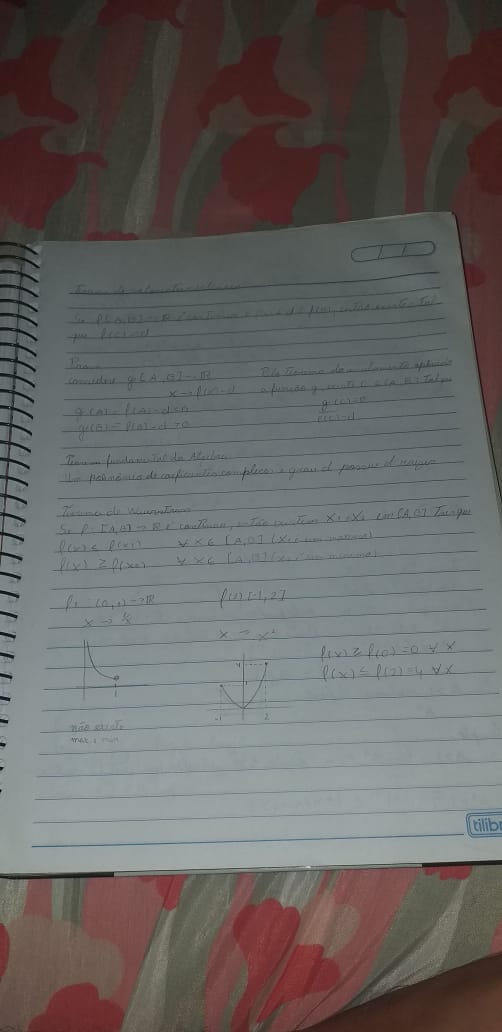 Teorema do valor intermediário
Se f: [A, B] → R é contínua e f(A) < d < f(B), então existe c tal
que f(c) = d
Prova
considere g: [A, B] → R
x → f(x) - d
g(A) = f(A) - d < 0
g(B) = f(B) - d > 0
Pelo Teorema do aplicado
a função g existe c ∈ (A, B) Tal que
g(c) = 0
f(c) = d
Teorema fundamental da Algebra
Um polinômio de coeficientes complexos e grau d possui d raízes
Teorema de Weierstrass
Se f: [A, B] → R é contínua, então existem X₁, X₂ em [A, B] Tais que
f(x) ≤ f(x₁) ∀ x ∈ [A, B] (X₁ é um maximo)
f(x) ≥ f(x₂) ∀ x ∈ [A, B] (x₂ é um minimo)
f: (0, 1) → R
x → 1/x
f(x) [-1, 2]
x → x²
f(x) ≥ f(0) = 0 ∀ x
f(x) ≤ f(2) = 4 ∀ x
1
4
1
-1 2
não existe
max e min
tilibr